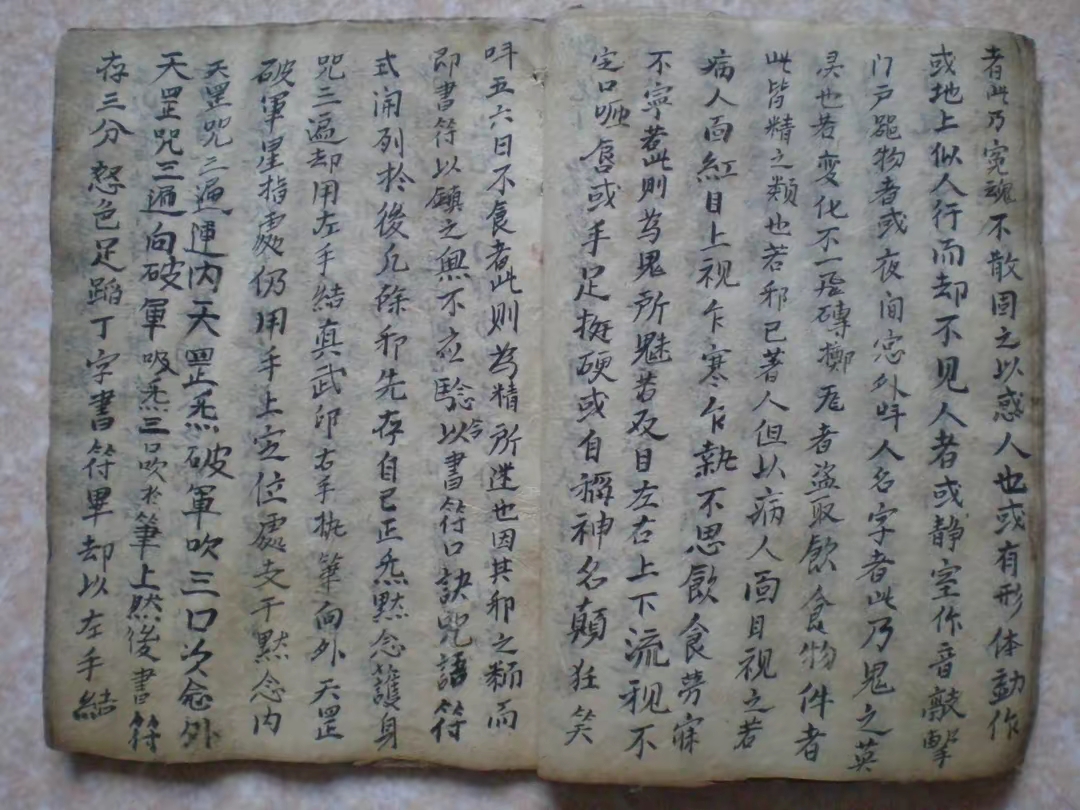 者此乃冤魂不散固之以惑人也或有形体動作
或地上似人行而却不见人者或静室作音敲擊
门戸噐物者或夜间窓外呌人名字者此乃鬼之英
灵也若变化不一飛磚擲瓦者盗取飲食物件者
此皆精之類也若邪已著人但以病人面目視之若
病人面紅目上視乍寒乍熱不思飲食夢寐
不寧若此則為鬼所魅若反目左右上下流視不
定口咂食或手足挺硬或自稱神名顛狂笑
呌五六日不食者此則為精所迷也因其邪之類而
即書符以鎮之無不应驗今以書符口訣咒語符
式開列於後凡除邪先存自己正炁黙念護身
咒三遍却用左手結真武印右手执筆向外天罡
破軍星指處仍用手上定位處支干黙念内
天罡咒三遍運内天罡炁破軍吹三口次念外
天罡咒三遍向破軍吸炁三口吹於筆上然後書符
存三分怒色足蹈丁字書符畢却以左手結